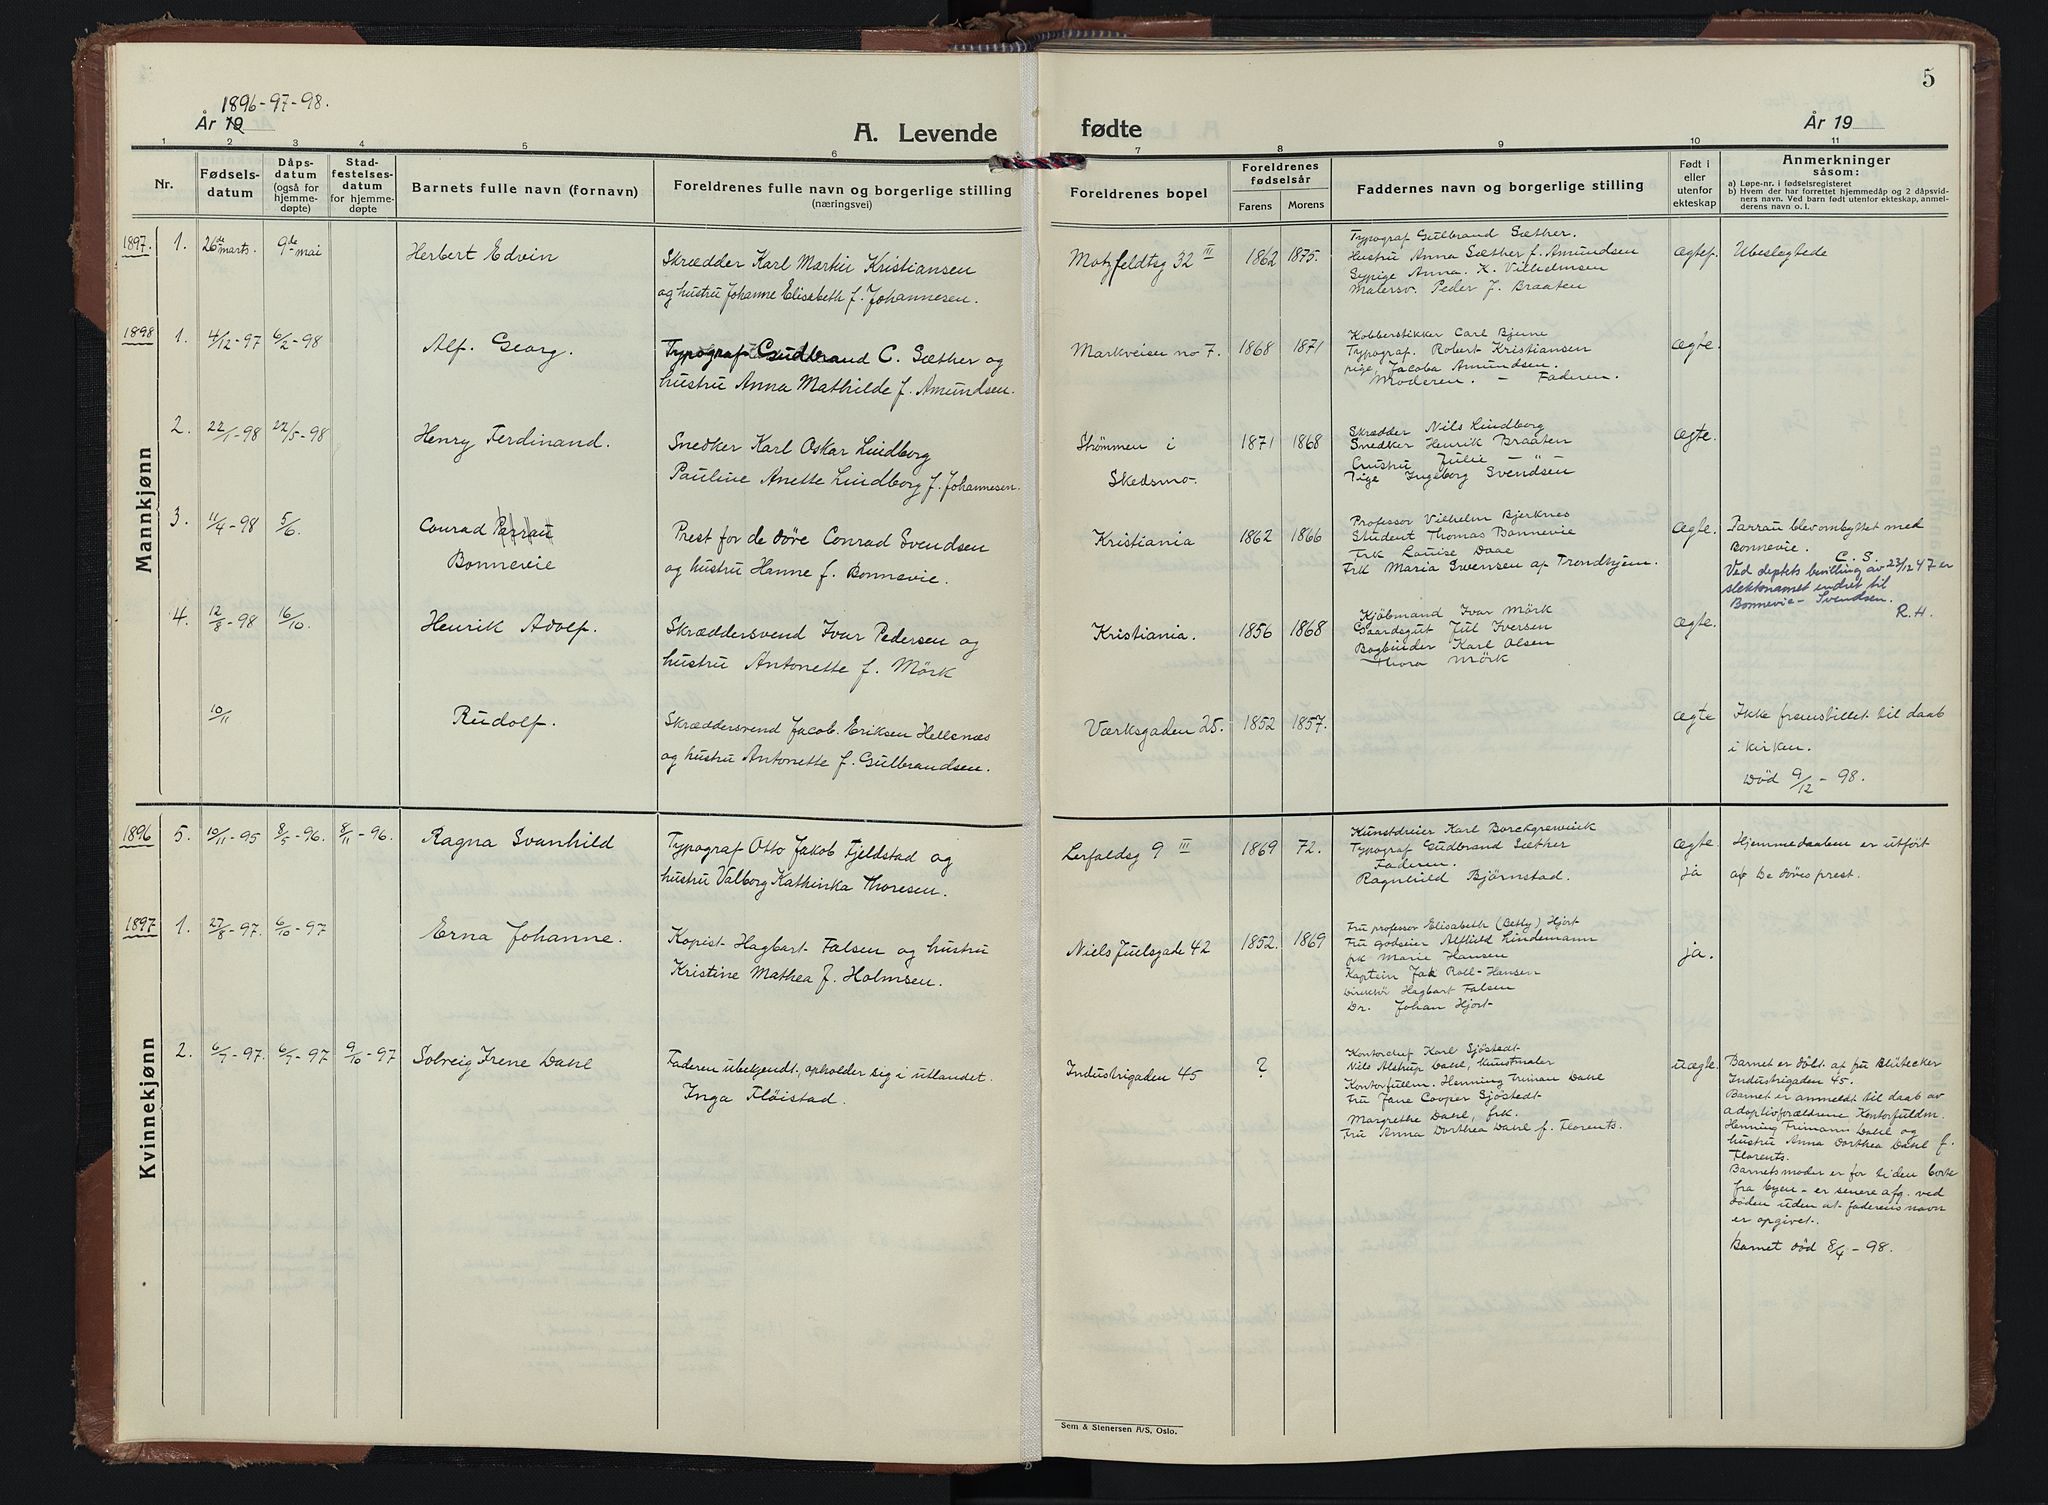 5
1896-97-98.
År 19
A. Levende
fødte
År 19
1 2 3 4 5 6 7 8 9 10 11
Nr.
Fødsels-
datum
Dåps-
datum
(også for
hjemme-
døpte)
Stad-
festelses-
datum
for hjemme-
døpte
Barnets fulle navn (fornavn)
Foreldrenes fulle navn og borgerlige stilling
(næringsvei)
Foreldrenes bopel
Foreldrenes
fødselsår
Farens Morens
Faddernes navn og borgerlige stilling
Født i
eller
utenfor
ekteskap
Anmerkninger
såsom:
a) Løpe-nr. i fødselsregisteret
b) Hvem der har forrettet hjemmedåp og 2 dåpsvid-
ners navn. Ved barn født utenfor ekteskap, anmel-
derens navn o. l.
Mannkjønn
1897. 1. 26de marts. 9de mai
Herbert Edvin
Skrædder Karl Martin Kristiansen
og hustru Johanne Elisabeth f. Johannesen.
Motzfeldtsg 32 III
1862 1875.
Typograf Gulbrand Sæther.
Hustru Anna Sæther f. Amundsen
Sypige Anna. K. Vilhelmsen
Malersv. Peder J. Braaten
ægtef.
Ubeslegtede
1898 1. 4/12-97 6/2-98
Alf. Georg.
Typograf Gudbrand C. Sæther og
hustru Anna Mathilde f. Amundsen.
Markveien no 7.
1868 1871
Kobberstikker Carl Bjune
Typograf. Robert Kristiansen
pige, Jacoba Amundsen.
Moderen. - Faderen.
ægte.
2. 22/1-98 22/5-98
Henry Ferdinand.
Snedker Karl Oskar Lindborg
Pauline Anette Lindborg f. Johannesen.
Strømmen i
Skedsmo.
1871 1868
Skrædder Nils Lindborg
Snedker Henrik Braaten
Hustru Julie - " -
Pige Ingeborg Svendsen
ægte.
3. 11/4-98 5/6.
Conrad Parrau
Bonnevie
Prest for de døve Conrad Svendsen
og hustru Hanne f. Bonnevie.
Kristiania
1862 1866
Professor Vilhelm Bjerknes
Student Thomas Bonnevie
Frk Louise Daae
Frk Maria Svensen af Trondhjem.
ægte.
Parrau blev ombyttet med
Bonnevie.
C. S.
Ved deptets bevilling av 23/12 47 er
slektsnamnet endret til
Bonnevie-Svendsen.
R. H.
4. 12/8-98 16/10.
Henrik Adolf.
Skræddersvend Ivar Pedersen og
hustru Antonette f. Mörk
Kristiania.
1856 1868
Kjöbmand Ivar Mörk
Gaardsgut Jul Iversen
Bogbinder Karl Olsen
Thora Mörk
ægte.
10/11
Rudolf.
Skræddersvend Jacob. Eriksen Hellesnæs
og hustru Antonette f. Gulbrandsen.
Værksgaden 25.
1852 1857.
ægte
Ikke fremstillet til daab
i kirken.
Död 9/12-98.
Kvinnekjønn
1896 5. 10/11-95 8/5-96. 8/11-96.
Ragna Svanhild
Typograf Otto Jakob Fjeldstad og
hustru Valborg Kathinka Thoresen.
Lerfaldsg 9 III
1869 72.
Kunstdreier Karl Borckgrewink
Typograf Gudbrand Sæther
Faderen.
Ragnhild Björnstad.
ægte.
ja
Hjemmedaaben er utfört
af De döves prest.
1897 1. 27/8-97. 6/10-97
Erna Johanne.
Kopist Hagbart Falsen og hustru
Kristine Mathea f. Holmsen.
Niels Juulsgade 42
1852. 1869
Fru professor Elisabeth (Betly) Hjort
Fru godseier Alfhild Lindemann
frk Marie Hansen
Kaptein Jak Roll-Hansen
Direktör Hagbart Falsen
Dr. Johan Hjort
ja.
2. 6/7-97. 6/7-97 9/10-97
Solveig Irene Dahl
Faderen ubekjendt, opholder sig i utlandet.
Inga Flöistad.
Industrigaden 45
?
Kontorchef Karl Sjöstedt
Nils Alstrup Dahl, kunstmaler
Kontorfullm. Henning Friman Dahl
Fru Jane Cooper Sjöstedt
Margrethe Dahl, frk.
Fru Anna Dorthea Dahl f. Florents.
uægte.
Barnet er döbt af fru Blütecker
Industrigaden 45.
Barnet er anmeldt til daab av
adoptivforældrene Kontorfuldm.
Henning Frimann Dahl og
hustru Anna Dorthea Dahl f.
Florents.
Barnets moder er for tiden borte
fra byen - er senere afg. ved
döden uden at faderens navn
er opgivet.
Barnet död 8/4-98.
Sem & Stenersen A/S, Oslo.